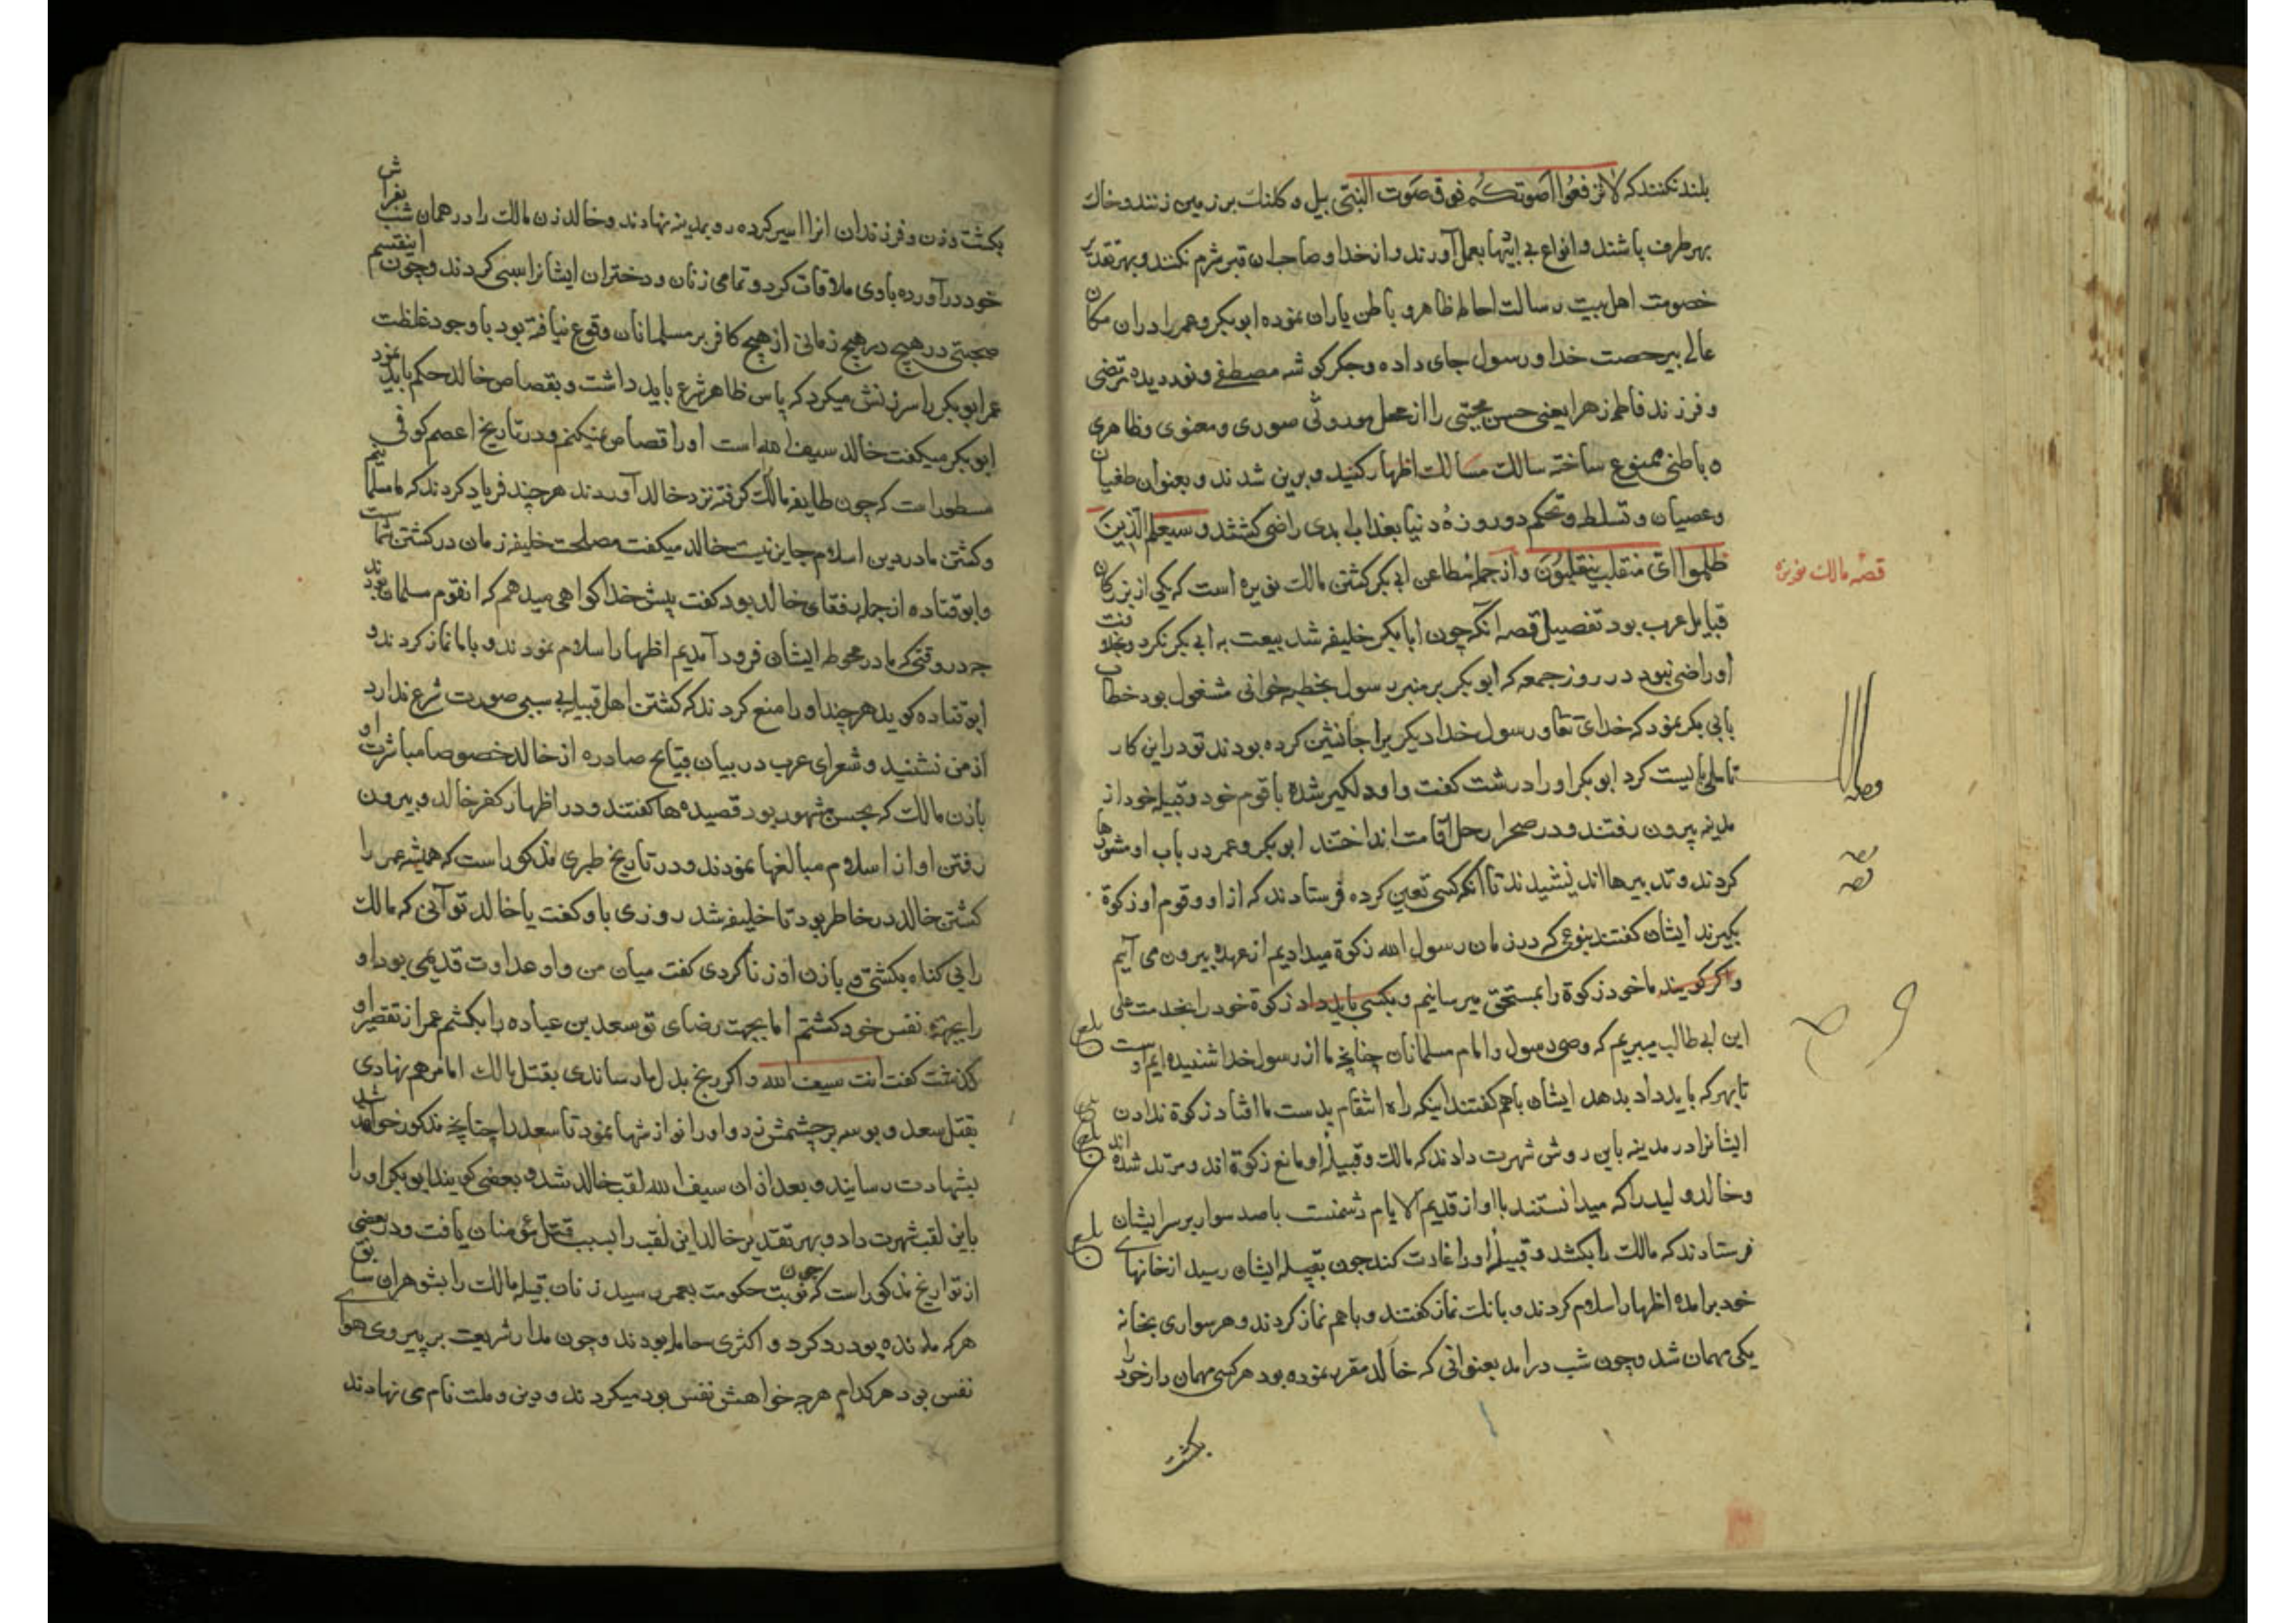 بلند نکنند که لا ترفعوا اصوتکم فوق صوت النبی بیل و کلنک بر زمین زنند و خاک
بهر طرف پاشند و انواع بی ادبیها بعمل آورند و از خدا و صاحبان قبر شرم نکنند و بهر تقدیر
خصومت اهل بیت رسالت احاطه ظاهر و باطن یاران نموده ابوبکر و عمر را در ان مکان
عالی بیرخصت خدا و رسول جای داده و جکر کوشه مصطفی و نور دیده مرتضی
و فرزند فاطمه زهرا یعنی حسن مجتبی را از محل موروثی صوری و معنوی و ظاهری
و باطنی ممنوع ساخته سالک مسالک اظهار کنید و برین شدند و بعنوان طغیان
و عصیان و تسلط و تحکم دو روزهٔ دنیا بعذاب ابدی راضی کشتند و سیعلم الذین
ظلموا ای منقلب ینقلبون و از جمله مطاعن ابی بکر کشتن مالک نویره است که یکی از بزرکان
قصه مالک نویره
قبایل عرب بود تفصیل قصه آنکه چون ابابکر خلیفه شد بیعت به ابی بکر نکرد و بخلافت
او راضی نبود در روز جمعه که ابوبکر بر منبر رسول بخطبه خوانی مشغول بود خطاب
بابی بکر نمود که خدای تعا و رسول خدا دیکریرا جانشین کرده بودند تو در این کار
تاملی بایست کرد ابوبکر او را درشت کفت و او دلکیر شده با قوم خود و قبیله خود از
مدینه بیرون رفتند و در صحرا رحل اقامت انداختند ابوبکر و عمر در باب او مشورها
کردند و تدبیرها اندیشیدند تا آنکه کسی تعین کرده فرستادند که از او و قوم او زکوة
بکیرند ایشان کفتند بنوعی که در زمان رسول الله زکوة میدادیم از عهده بیرون می آیم
و اکر کویند ما خود زکوة را بمستحق میرسانیم و بکسی باید داد زکوة خود را بخدمت علی
ابن ابی طالب میبریم که وصی رسول و امام مسلمانان چنانچه ما از رسول خدا شنیده ایم اوست
تا بهر که باید داد بدهد ایشان باهم کفتند اینکه راه انتقام بدست ما افتاد زکوة ندادن
ایشانرا در مدینه باین روش شهرت دادند که مالک و قبیله او مانع زکوة اند و مرتد شده اند
و خالد ولید را که میدانستند با او از قدیم الایام دشمنست با صد سوار بر سر ایشان
فرستادند که مالک را بکشد و قبیلهٔ او را غارت کند چون بقبیله ایشان رسید از خانهای
خود برامده اظهار اسلام کردند و بانک نماز کفتند و باهم نماز کردند و هر سواری بخانه
یکی مهمان شد و چون شب درامد بعنوانی که خالد مقرر نموده بود هر کسی مهمان دار خود را
بکشت
بکشت و زن و فرزندان انرا اسیر کرده رو بمدینه نهادند و خالد زن مالک را در همان شب بفراش
خود درآورده با وی ملاقات کرد و تمامی زنان و دختران ایشانرا سبی کردند و چون اینقسم
صحبتی در هیچ زمانی از هیچ کافر بر مسلمانان وقوع نیافته بود با وجود غلظت
عمر ابوبکر را سرزنش میکرد که پاس ظاهر شرع باید داشت و بقصاص خالد حکم باید نمود
ابوبکر میکفت خالد سیف الله است او را قصاص نمیکنم و در تاریخ اعصم کوفی
مسطور است که چون طایفه مالک کرفته نزد خالد آوردند هر چند فریاد کردند که ما مسلمانیم
و کشتن ما در دین اسلام جایز نیست خالد میکفت مصلحت خلیفه زمان در کشتن شماست
و ابو قتاده از جمله رفقای خالد بود کفت پیش خدا کواهی میدهم که انقوم مسلمان بودند
چه در وقتی که ما در محوطه ایشان فرود آمدیم اظهار اسلام نمودند و با ما نماز کردند و
ابو قتاده کوید هر چند او را منع کردند که کشتن اهل قبیله بی سببی صورت شرع ندارد
از من نشنید و شعرای عرب در بیان قبایح صادره از خالد خصوصا مباشرت او
با زن مالک که بحسن مشهور بود قصیده ها کفتند و در اظهار کفر خالد و بیرون
رفتن او از اسلام مبالغها نمودند و در تاریخ طبری مذکور است که همیشه عمر را
کشتن خالد در خاطر بود تا خلیفه شد روزی باو کفت یا خالد تو آنی که مالک
را بی کناه بکشتی و با زن او زنا کردی کفت میان من و او عداوت قدیمی بود او
را بجهة نفس خود کشتم اما بجهت رضای تو سعد بن عباده را بکشتم عمر از تقصیر او
کذشت کفت انت سیف الله و اکر رنج بدل ما رساندی بقتل مالک اما مرهم نهادی
بقتل سعد و بوسه بر چشمش زد و او را نوازشها نمود تا سعد را چنانچه مذکور خواهد شد
بشهادت رسانید و بعد از ان سیف الله لقب خالد شد و بعضی کویند ابوبکر او را
باین لقب شهرت داد و بهر تقدیر خالد این لقب را بسبب قتل مؤمنان یافت و در بعضی
از تواریخ مذکور است که چون نوبت حکومت بعمر رسید زنان قبیله مالک را بشوهران سابق
هر که مانده بود رد کرد و اکثری حامله بودند و چون مدار شریعت بر پیروی هوای
نفس بود هر کدام هر چه خواهش نفس بود میکردند و دین و ملت نام می نهادند